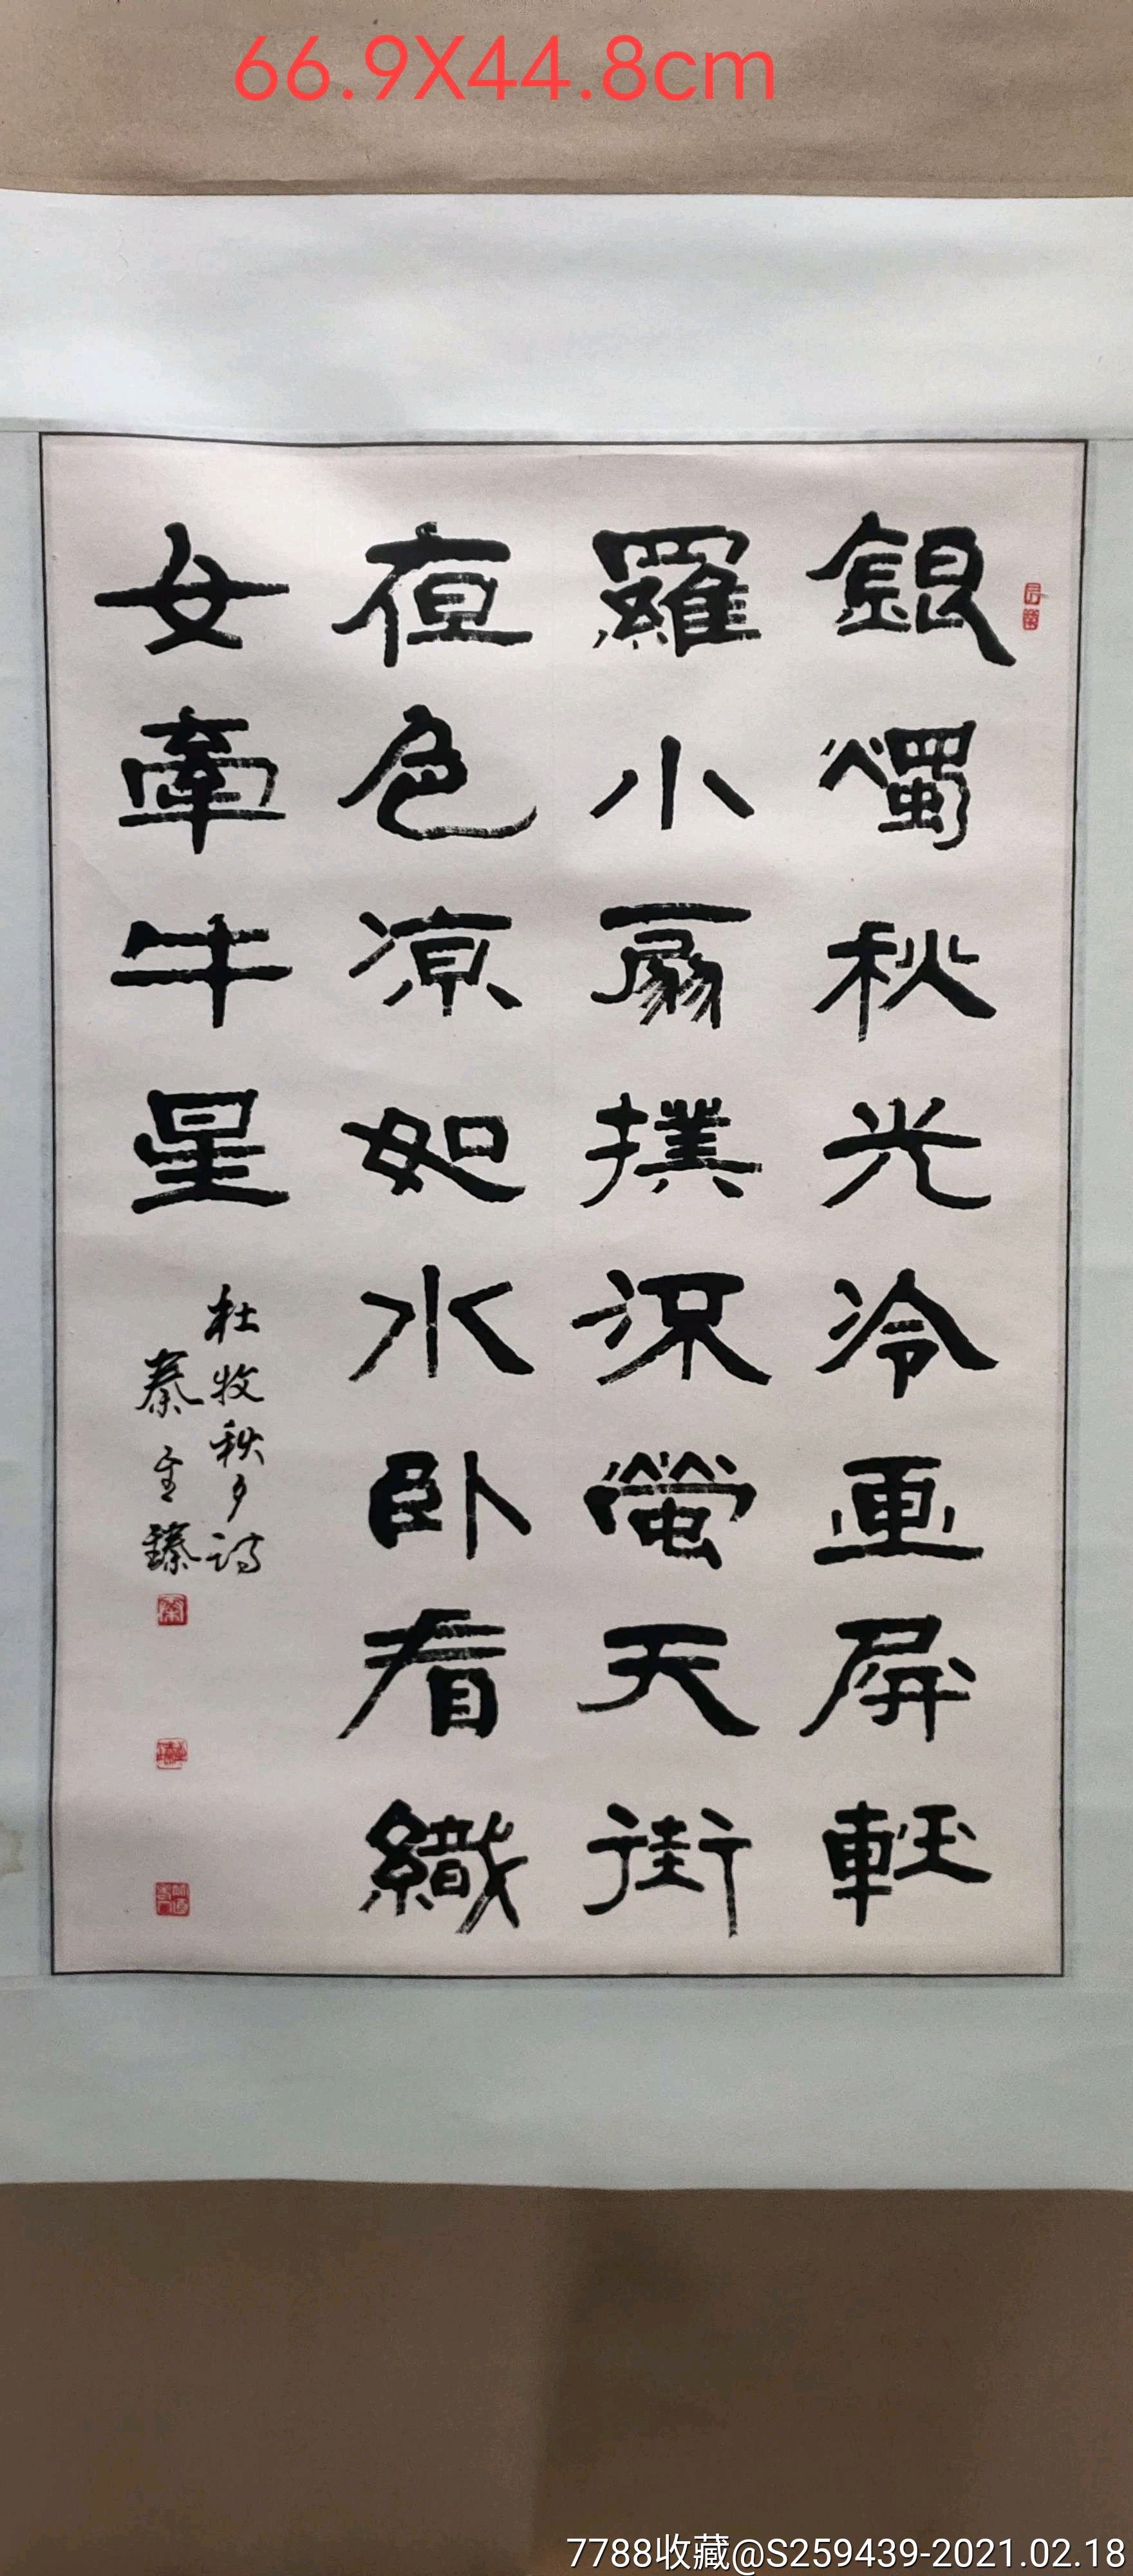 66.9X44.8cm
銀燭秋光冷画屏輕
羅小扇撲流螢天街
夜色凉如水卧看織
女牽牛星
杜牧秋夕诗
秦臻
7788收藏@S259439-2021.02.18